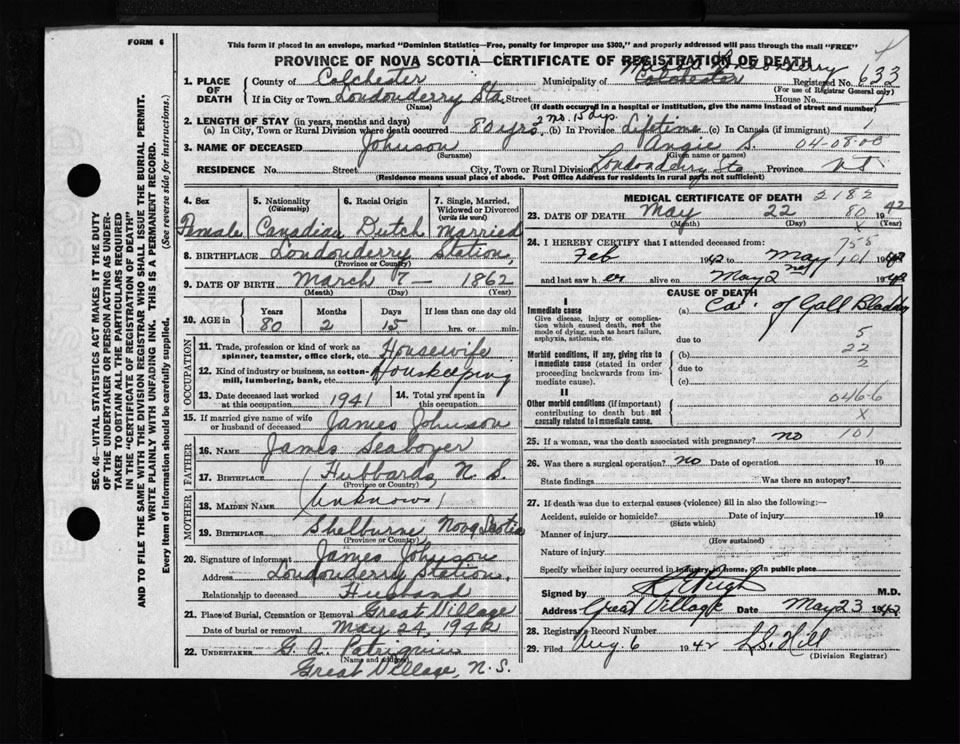 FORM 6
This form if placed in an envelope, marked "Dominion Statistics—Free, penalty for improper use $300," and properly addressed will pass through the mail "FREE"
PROVINCE OF NOVA SCOTIA—CERTIFICATE OF REGISTRATION OF DEATH
1. PLACE OF DEATH
County of Colchester Municipality of Colchester Registered No. 633
(For use of Registrar General only)
If in City or Town Londonderry Sta. Street House No.
(Name) (If death occurred in a hospital or institution, give the name instead of street and number)
2. LENGTH OF STAY (in years, months and days)
(a) In City, Town or Rural Division where death occurred 80 yrs. 2 mo. 15 dys. (b) In Province Lifetime (c) In Canada (if immigrant)
3. NAME OF DECEASED Johnson Angie S. 04-08-00
(Surname) (Given name or names)
RESIDENCE No. Street City, Town or Rural Division Londonderry Sta Province
(Residence means usual place of abode. Post Office Address for residents in rural parts not sufficient)
SEC. 46—VITAL STATISTICS ACT MAKES IT THE DUTY
OF THE UNDERTAKER OR PERSON ACTING AS UNDER-
TAKER TO OBTAIN ALL THE PARTICULARS REQUIRED
IN THE "CERTIFICATE OF REGISTRATION OF DEATH"
AND TO FILE THE SAME WITH THE DIVISION REGISTRAR WHO SHALL ISSUE THE BURIAL PERMIT.
WRITE PLAINLY WITH UNFADING INK. THIS IS A PERMANENT RECORD.
Every item of information should be carefully supplied. (See reverse side for instructions.)
4. Sex 5. Nationality (Citizenship) 6. Racial Origin 7. Single, Married, Widowed or Divorced (write the word)
Female Canadian Dutch Married
8. BIRTHPLACE Londonderry Station,
(Province or Country)
9. DATE OF BIRTH March 7— 1862
(Month) (Day) (Year)
10. AGE in Years Months Days If less than one day old
80 2 15 hrs. or min.
OCCUPATION
11. Trade, profession or kind of work as spinner, teamster, office clerk, etc. Housewife
12. Kind of industry or business, as cotton-mill, lumbering, bank, etc. Houskeeping
13. Date deceased last worked at this occupation 1941 14. Total yrs. spent in this occupation
15. If married give name of wife or husband of deceased James Johnson
FATHER
16. NAME James Seaboyer
17. BIRTHPLACE Hubbards, N. S.
(Province or Country)
MOTHER
18. MAIDEN NAME (Unknown)
19. BIRTHPLACE Shelburne Nova Scotia
(Province or Country)
20. Signature of informant James Johnson
Address Londonderry Station,
Relationship to deceased Husband
21. Place of Burial, Cremation or Removal Great Village
Date of burial or removal May 24, 1942
22. UNDERTAKER G. A. Patriquin
(Name and address)
Great Village, N. S.
MEDICAL CERTIFICATE OF DEATH 2182
23. DATE OF DEATH May 22 80 1942
(Month) (Day) X (Year)
24. I HEREBY CERTIFY that I attended deceased from: 755
Feb 1942 to May 101 1942
and last saw her alive on May 2nd 1942
CAUSE OF DEATH
I
Immediate cause (a) Ca. of Gall Bladder
Give disease, injury or complication which caused death, not the mode of dying, such as heart failure, asphyxia, asthenia, etc.
due to 5
Morbid conditions, if any, giving rise to immediate cause (stated in order proceeding backwards from immediate cause).
(b) 22
due to 2
(c)
II
Other morbid conditions (if important) contributing to death but not causally related to immediate cause.
046-6
X
25. If a woman, was the death associated with pregnancy? no 101
26. Was there a surgical operation? no Date of operation 19
State findings Was there an autopsy?
27. If death was due to external causes (violence) fill in also the following:—
Accident, suicide or homicide? Date of injury 19
(State which)
Manner of injury
(How sustained)
Nature of injury
Specify whether injury occurred in industry, in home, or in public place
Signed by M.D.
Address Great Village Date May 23 1942
28. Registrar's Record Number
29. Filed Aug. 6 1942 L.S. Hill
(Division Registrar)